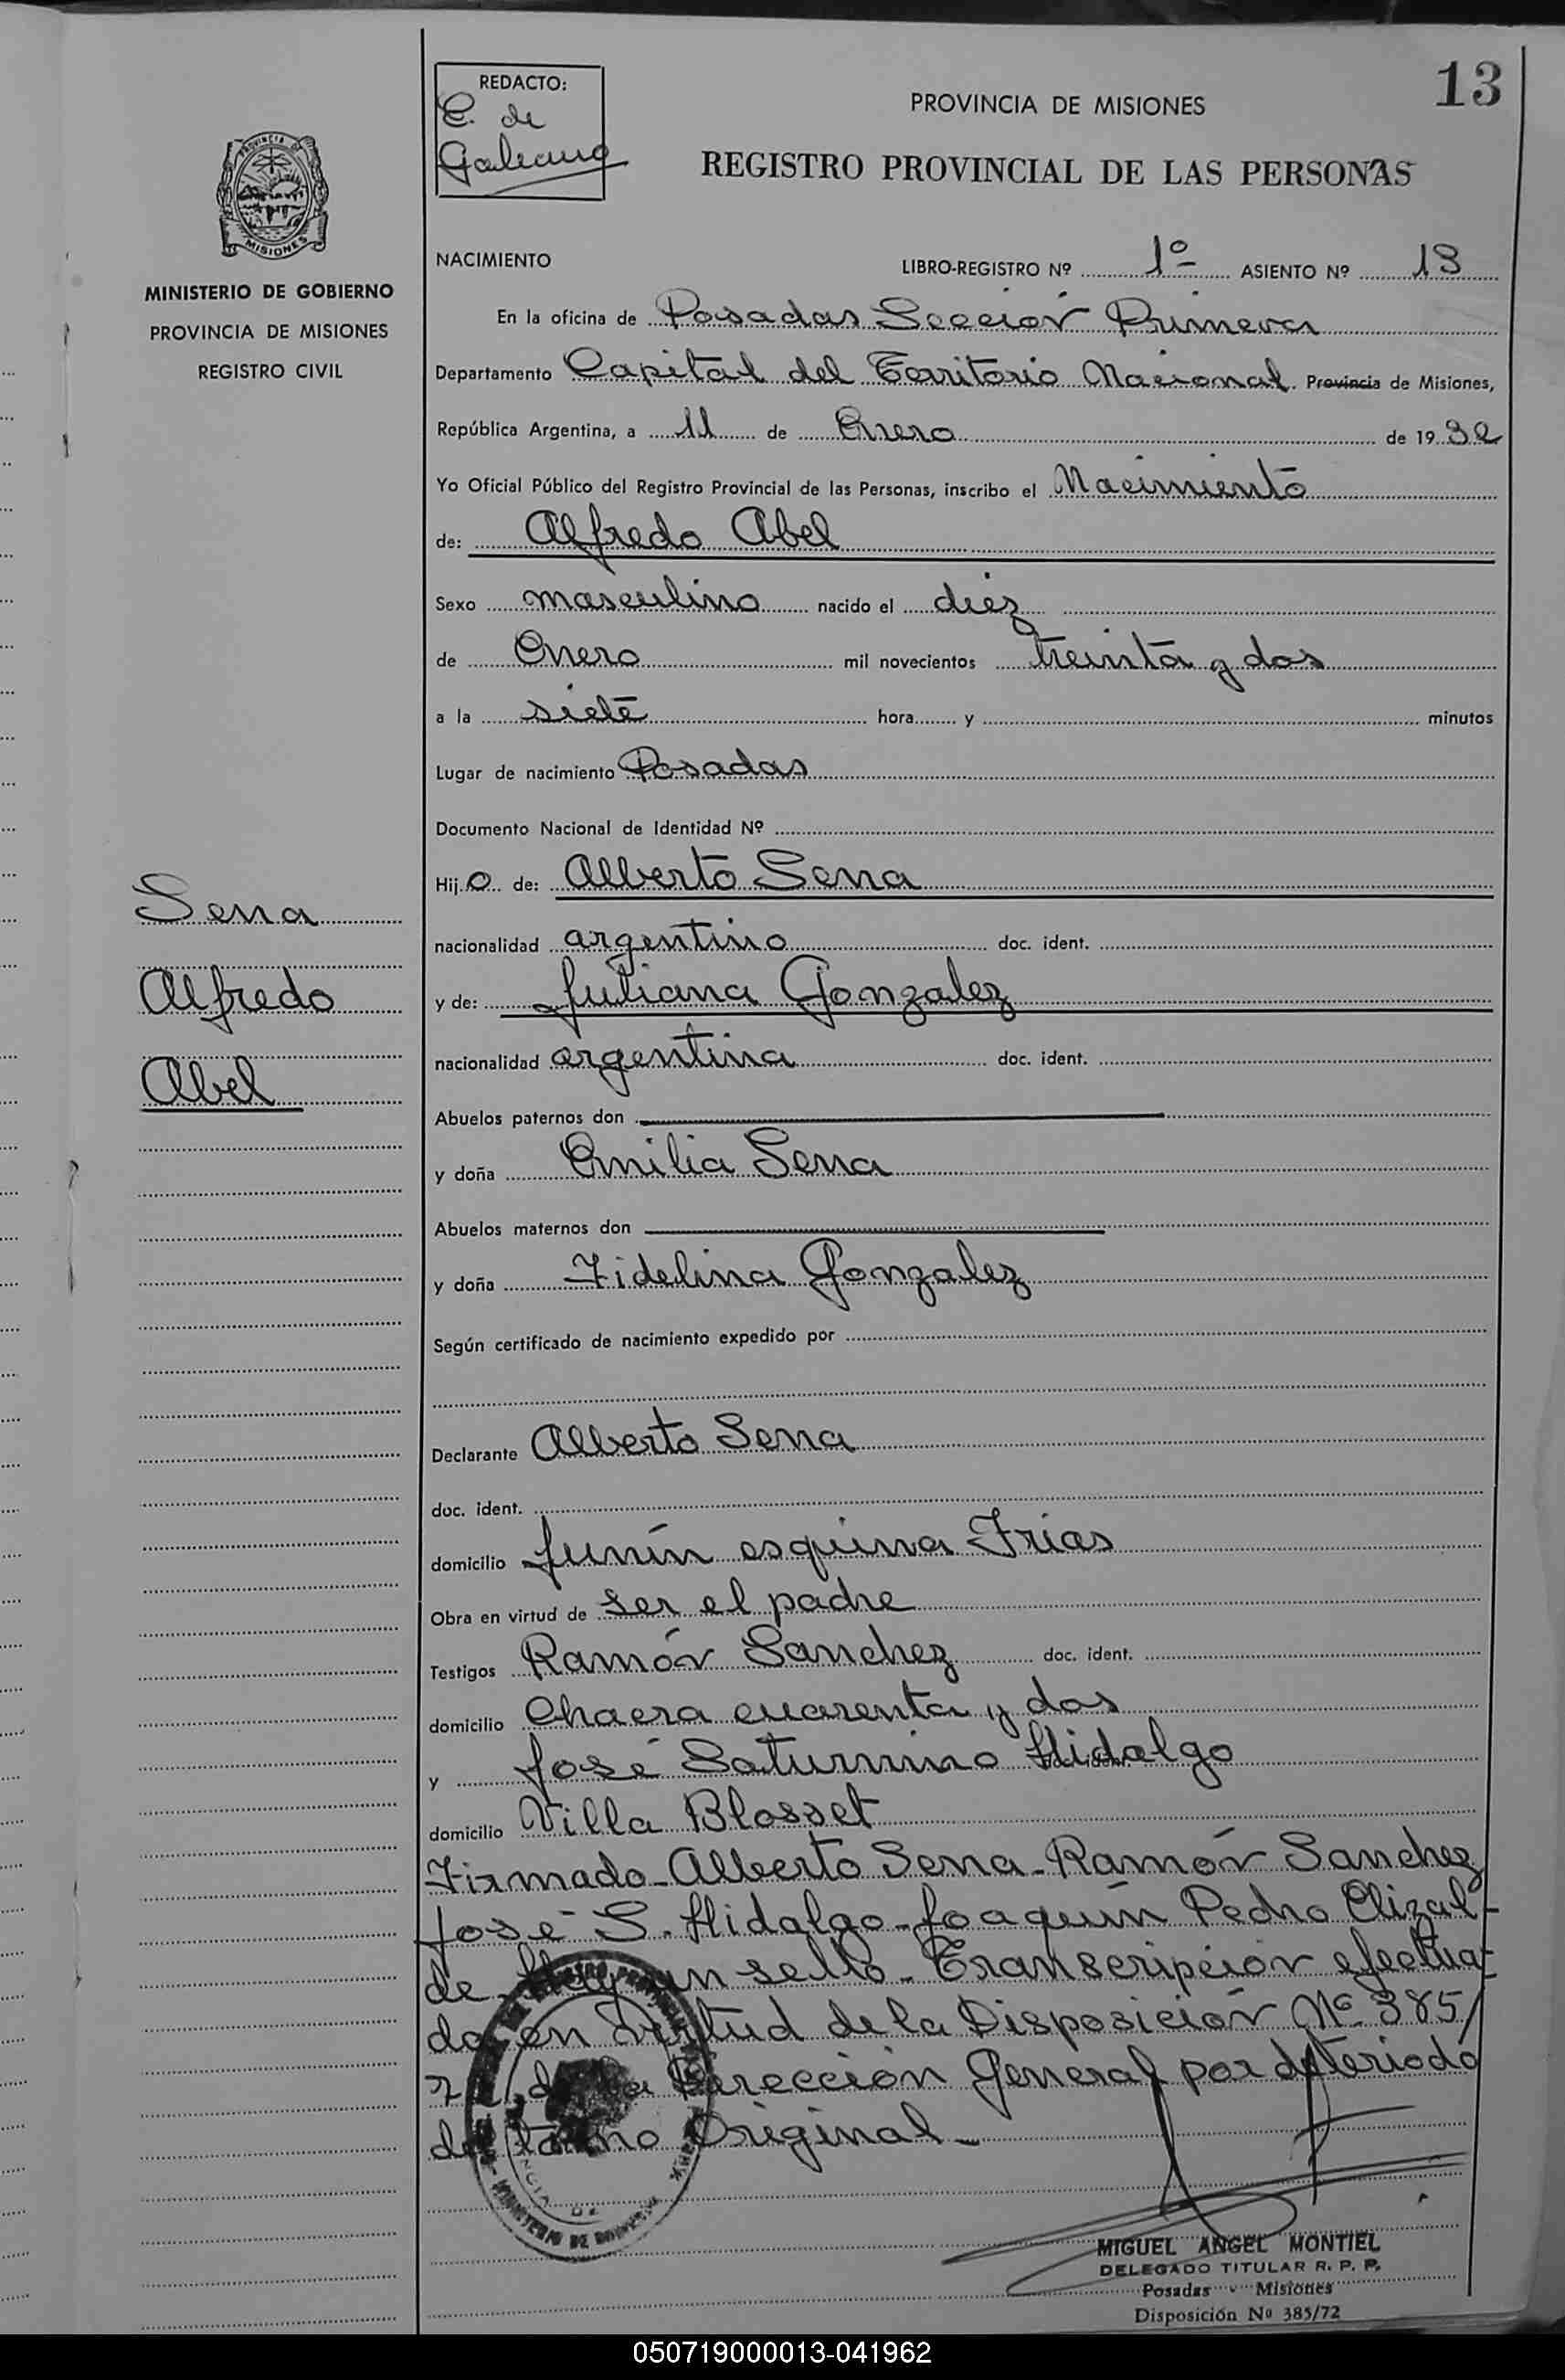 13
REDACTO:
E. de
Galeano
PROVINCIA DE MISIONES
REGISTRO PROVINCIAL DE LAS PERSONAS
MISIONES
MINISTERIO DE GOBIERNO
PROVINCIA DE MISIONES
REGISTRO CIVIL
NACIMIENTO LIBRO-REGISTRO Nº 1º ASIENTO Nº 13
En la oficina de Posadas Sección Primera
Departamento Capital del Territorio Nacional Provincia de Misiones,
República Argentina, a 11 de Enero de 1932
Yo Oficial Público del Registro Provincial de las Personas, inscribo el Nacimiento
de: Alfredo Abel
Sexo masculino nacido el diez
de Enero mil novecientos treinta y dos
a la siete hora y minutos
Lugar de nacimiento Posadas
Documento Nacional de Identidad Nº
Hijo de: Alberto Sena
nacionalidad argentino doc. ident.
y de: Juliana Gonzalez
nacionalidad argentina doc. ident.
Abuelos paternos don
y doña Emilia Sena
Abuelos maternos don
y doña Fidelina Gonzalez
Según certificado de nacimiento expedido por
Declarante Alberto Sena
doc. ident.
domicilio Junín esquina Frias
Obra en virtud de ser el padre
Testigos Ramón Sanchez doc. ident.
domicilio Chacra cuarenta y dos
y José Saturnino Hidalgo
domicilio Villa Blosset
Firmado-Alberto Sena-Ramón Sanchez
José S. Hidalgo-Joaquín Pedro Elizal-
de-Hay un sello-Transcripción efectua-
da en virtud de la Disposición Nº 385/
72, de la Dirección General por deteriodo
del tomo Original-
Sena
Alfredo
Abel
MIGUEL ANGEL MONTIEL
DELEGADO TITULAR R. P. P.
Posadas - Misiones
Disposición Nº 385/72
050719000013-041962